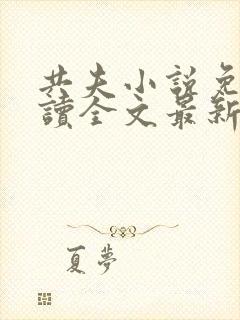 共夫小說免
讀全文最新
夏夢